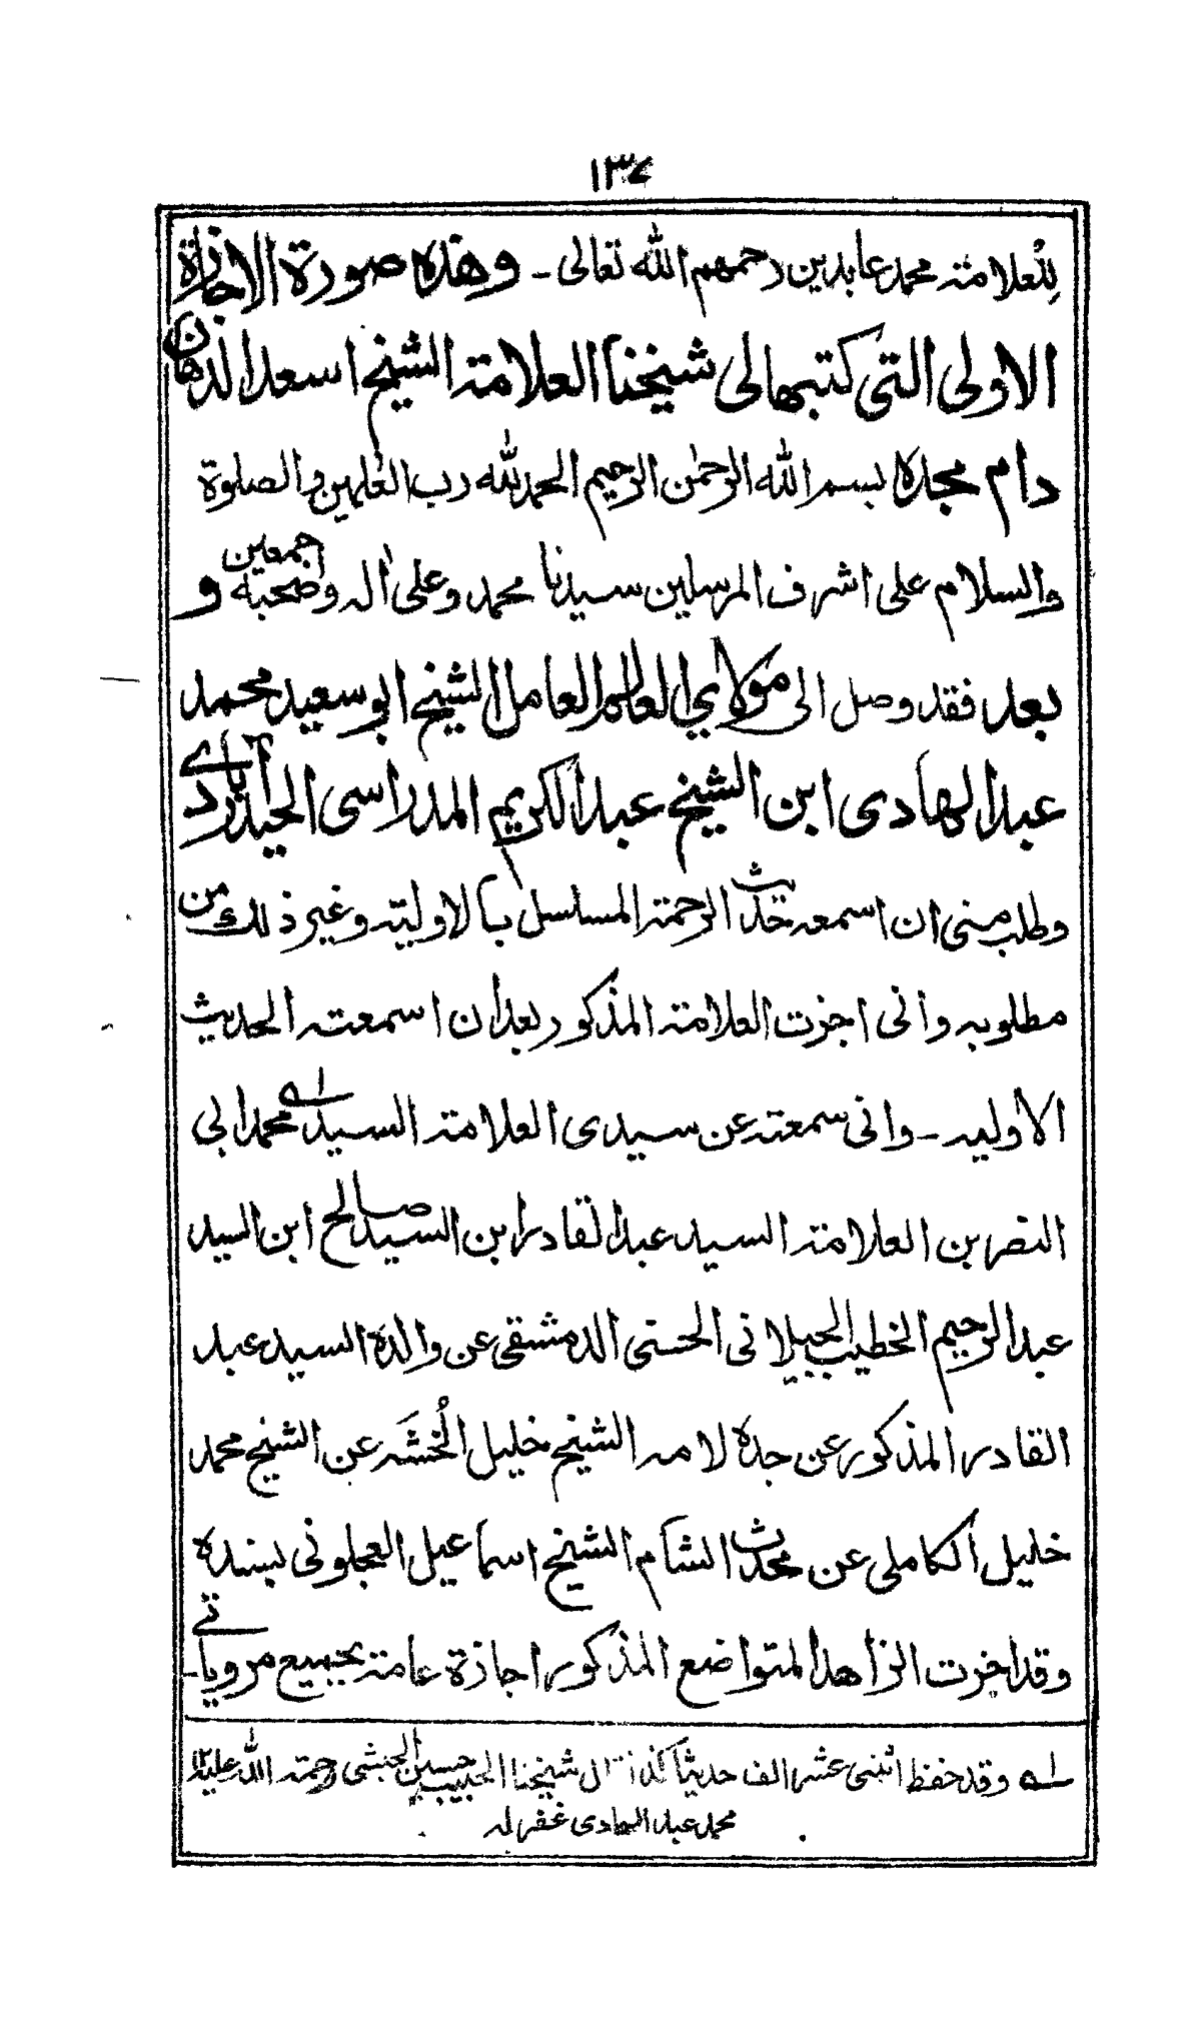 ١٣٧
للعلامة محمد عابدين رحمهم الله تعالى - وهذه صورة الاجازة
الاولى التي كتبها لى شيخنا العلامة الشيخ اسعد الدهان
دام مجده بسم الله الرحمن الرحيم الحمد لله رب العلمين والصلوة
والسلام على اشرف المرسلين سيدنا محمد وعلى اله وصحبه اجمعين و
بعد فقد وصل الى مولاي العالم العامل الشيخ ابو سعيد محمد
عبد الهادى ابن الشيخ عبد الكريم المدراسى الحيدرابادے
وطلب منى ان اسمعه حديث الرحمة المسلسل بالاولية وغير ذلك من
مطلوبه وانى اجزت العلامة المذكور بعد ان اسمعته الحديث
الاوليه - وانى سمعته عن سيدى العلامة السيد محمد ابى
النصر بن العلامة السيد عبد القادر ابن السيد صالح ابن السيد
عبد الرحيم الخطيب الجيلانى الحسنى الدمشقى عن والده السيد عبد
القادر المذكور عن جده لامه الشيخ خليل الخُشَه عن الشيخ محمد
خليل الكاملى عن محدث الشام الشيخ اسماعيل العجلونى بسنده
وقد اجزت الزاهد المتواضع المذكور اجازة عامة بجميع مروياتے
ا؎ وقد حفظ اثنى عشر الف حديثا كذا قال شيخنا الحبيب حسين الحبشى رحمة الله عليه ١٢
محمد عبد الهادى غفر له